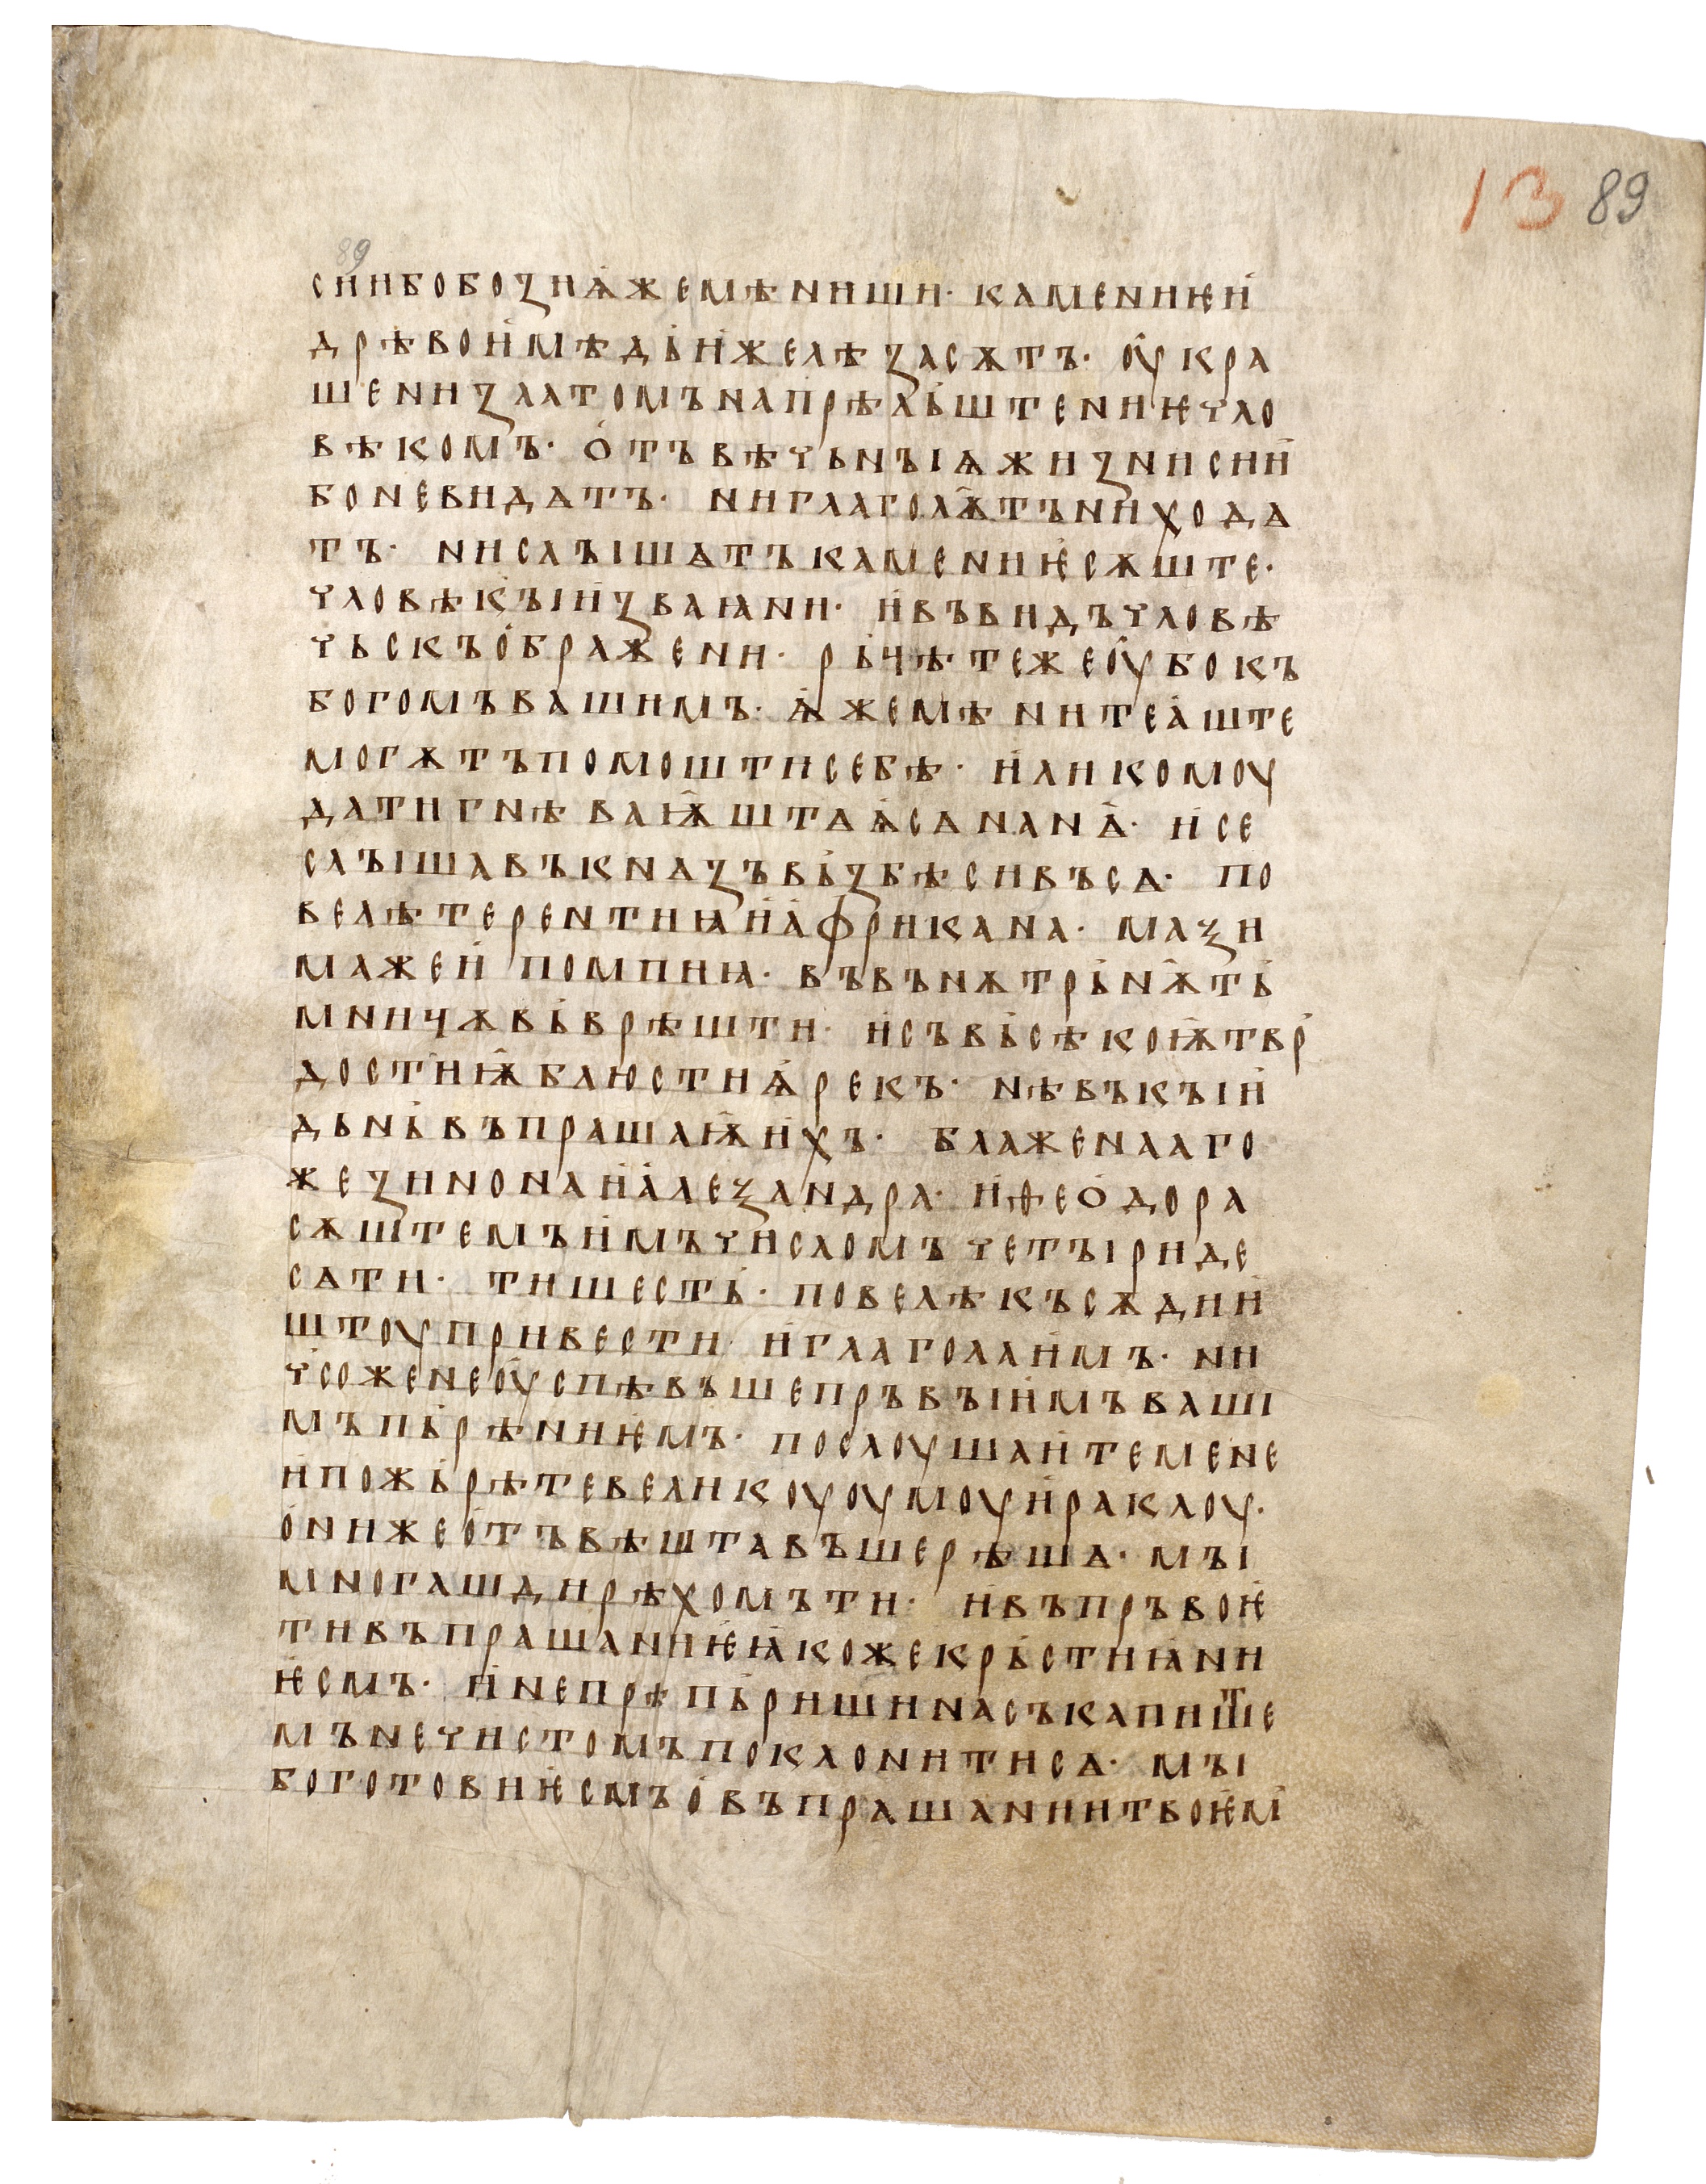 13 89
89
сии бо боꙁи ѧ҅же мѣниши· камениѥ и҅
дрѣво и҅ мѣдь и҅ желѣꙁа сѫтъ· оу҅кра
шени ꙁлатомъ на прѣльштениѥ чло
вѣкомъ· о҅тъ вѣчьнъіѩ жиꙁни сии҅
бо не видѧтъ· ни глагол҄ѭтъ ни ходѧ
тъ· ни слъішѧтъ камениѥ҅ сѫште·
чловѣкъі и҅ꙁваꙗни· и҅ въ видъ чловѣ
чьскъ о҅бражени· рьцѣте же оу҅бо къ
богомъ вашимъ· ѧ҅же мѣните а҅ште
могѫтъ помошти себѣ· и҅ли комоу
дати гнѣваѭ҅штѧѧ҅сѧ на нѧ҅· и҅ се
слъішавъ кнѧꙁъ вьꙁбѣси въсѧ· по
велѣ терентиꙗ и҅ а҅фрикана· маѯи
ма же и҅ помпиꙗ· въ вънѫтрьн҄ѫть
мницѫ вьврѣшти· и҅ съ вьсѣкоѭ҅ твр҄
достиѭ҅ блюсти ѧ҅ рекъ· нѣ въ къіи҅
дьнь въпрашаѭ҅ и҅хъ· блаженааго
же ꙁинона и҅ а҅леѯандра· и҅ ѳео҅дора
сѫштемъ и҅мъ числомъ четъіри де
сѧти· ти шесть· повелѣ къ сѫдии҅
штоу привести и҅ глагола и҅мъ· ни
чсоже не оу҅спѣвъше пръвъіи҅мъ ваши
мъ пьрѣниѥ҅мъ· послоушаи҅те мене
и҅ пожьрѣте великоуоумоу и҅раклоу·
о҅ни же о҅тъвѣштавъше рѣшѧ· мъі
многашди рѣхомъ ти· и҅ въ пръвоѥ҅
ти въпрашаниѥ҅ ꙗ҅коже крьстиꙗ҅ни
ѥ҅смъ· и҅ не прѣпьриши насъ капиште
мъ нечистомъ поклонитисѧ· мъі
бо готови ѥ҅смъ о҅ въпрашании твоѥ҅м҄